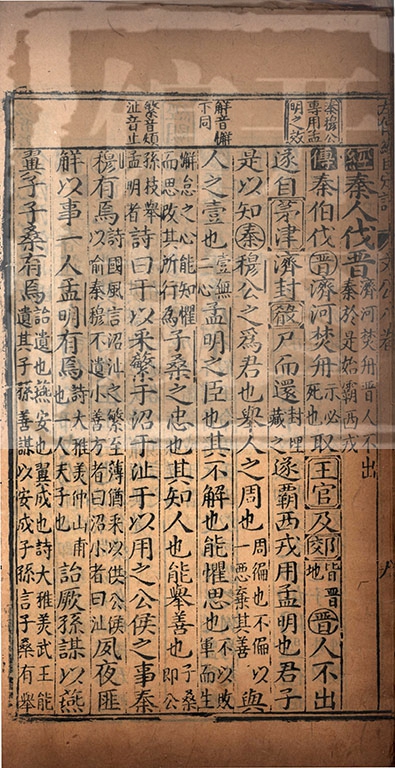 秦穆公
專用孟
明之效
解音懈
不同
蘩音煩
沚音止
經秦人伐晋濟河焚舟晋人不出秦於是始霸西戎
傳秦伯伐晋濟河焚舟示必死也取王官及郊皆晋地晋人不出
遂自茅津濟封殽尸而還封埋藏之遂霸西戎用孟明也君子
是以知秦穆公之爲君也舉人之周也周徧也不偏以一惡棄其善與
人之壹也壹無二心孟明之臣也其不解也能懼思也不以敗軍而生
懈怠之心能知懼而思改其所行爲子桑之忠也其知人也能舉善也子桑即公
孫枝舉孟明者詩曰于以采蘩于沼于沚于以用之公侯之事秦
穆有焉詩國風言沼沚之蘩至薄猶采以供公侯以俞秦穆不遺小善方者曰沼小者曰沚夙夜匪
解以事一人孟明有焉詩大雅美仲山甫也一人天子也詒厥孫謀以燕
翼子子桑有焉詒遺也燕安也翼成也詩大雅美武王能遺其子孫善謀以安成子孫言子桑有舉